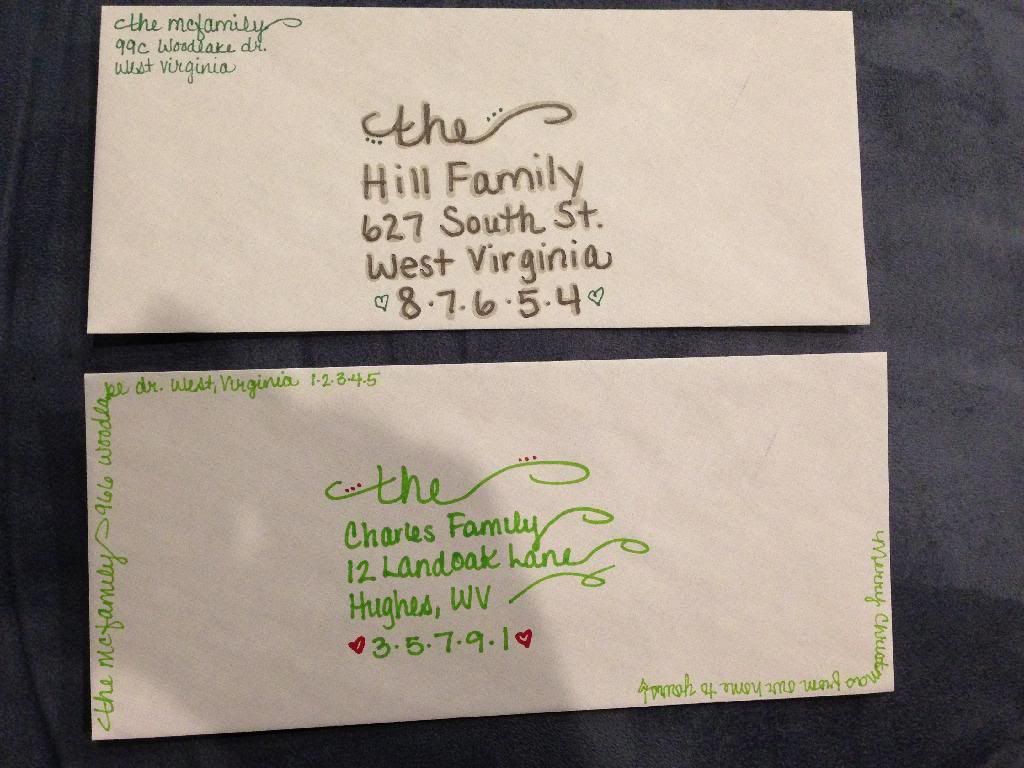 the mcfamily
99c Woodlake dr.
West Virginia
the
Hill Family
627 South St.
West Virginia
8.7.6.5.4
the mcfamily 966 Woodlake dr. West, Virginia 1.2.3.4.5
the
Charles Family
12 Landoak Lane
Hughes, WV
3.5.7.9.1
Merry Christmas from our home to yours